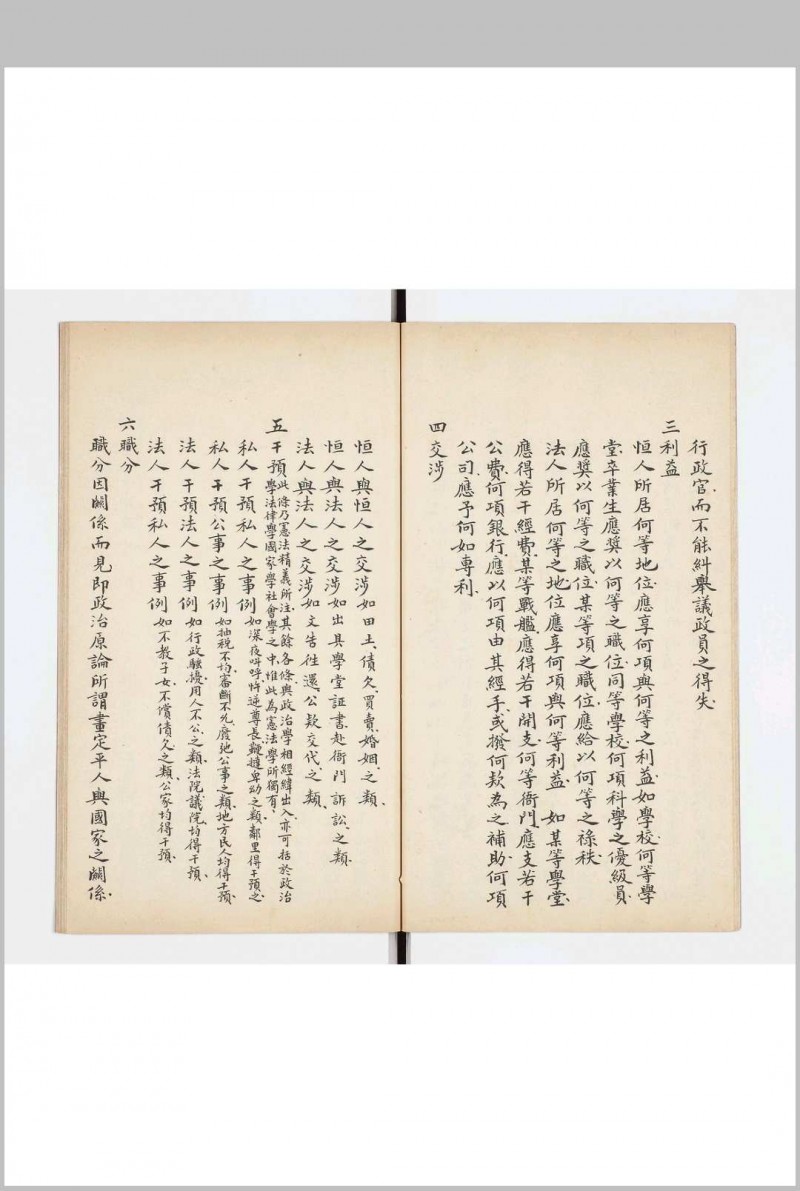 行政官、而不能糾舉議政員之得失、
三利益
恒人所居何等地位、應享何項與何等之利益、如學校何等學
堂卒業生應獎以何等之職位、同等學校何項科學之優級員、
應獎以何等之職位、某等項之職位、應給以何等之祿秩、
法人所居何等之地位、應享何項與何等利益、如某等學堂
應得若干經費、某等戰艦、應得若干開支、何等衙門、應支若干
公費、何項銀行、應以何項由其經手、或撥何款為之補助、何項
公司、應予何如專利、
四交涉
恒人與恒人之交涉如田土、債欠、買賣、婚姻、之類、
恒人與法人之交涉如出具學堂証書、赴衙門訴訟、之類、
法人與法人之交涉如文告往還、公款交代、之類、
五干預此條乃憲法精義所注、其餘各條、與政治學相經緯出入、亦可括於政治
學法律學國家學社會學之中、惟此為憲法學所獨有、
私人干預私人之事例如深夜叫呼、忤逆尊長、鞭撻卑幼之類、鄰里得干預之、
私人干預公事之事例如抽稅不均、審斷不允、廢弛公事之類、地方民人均得干預、
法人干預法人之事例如行政騷擾、用人不公、之類、法院議院、均得干預、
法人干預私人之事例如不教子女、不償債欠之類、公家均得干預、
六職分
職分因關係而見、即政治原論所謂畫定平人與國家之關係、